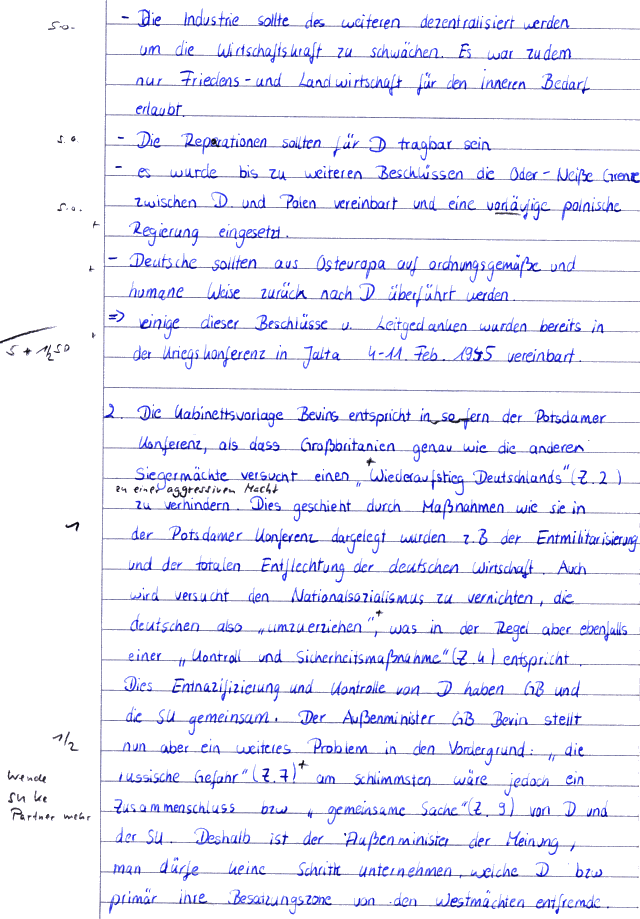 s.o.
- Die Industrie sollte des weiteren dezentralisiert werden
um die Wirtschaftskraft zu schwächen. Es war zudem
nur Friedens- und Landwirtschaft für den inneren Bedarf
erlaubt.
s.o.
- Die Reparationen sollten für D tragbar sein
- es wurde bis zu weiteren Beschlüssen die Oder-Neiße Grenze
s.o.
zwischen D. und Polen vereinbart und eine vorläufige polnische
+
Regierung eingesetzt.
+
- Deutsche sollten aus Osteuropa auf ordnungsgemäße und
humane Weise zurück nach D überführt werden.
=> einige dieser Beschlüsse u. Leitgedanken wurden bereits in
+
5 + 1/2 so
der Kriegskonferenz in Jalta 4-11. Feb. 1945 vereinbart.
2. Die Kabinettsvorlage Bevins entspricht in so fern der Potsdamer
Konferenz, als dass Großbritanien genau wie die anderen
Siegermächte versucht einen „Wiederaufstieg Deutschlands" (Z.2)
+
zu einer aggressiven Macht
zu verhindern. Dies geschieht durch Maßnahmen wie sie in
1
der Potsdamer Konferenz dargelegt wurden z.B der Entmilitarisierung
und der totalen Entflechtung der deutschen Wirtschaft. Auch
wird versucht den Nationalsozialismus zu vernichten, die
deutschen also „umzuerziehen", was in der Regel aber ebenfalls
+
einer „Kontroll und Sicherheitsmaßnahme" (Z.4) entspricht.
Dies Entnazifizierung und Kontrolle von D haben GB und
die SU gemeinsam. Der Außenminister GB Bevin stellt
1/2
nun aber ein weiteres Problem in den Vordergrund: „die
russische Gefahr" (Z.7) + am schlimmsten wäre jedoch ein
Wende
SU ke
Partner mehr
Zusammenschluss bzw „gemeinsame Sache" (Z.9) von D und
der SU. Deshalb ist der Außenminister der Meinung,
man dürfe keine Schritte unternehmen, welche D bzw
primär ihre Besatzungszone von den Westmächten entfremde.